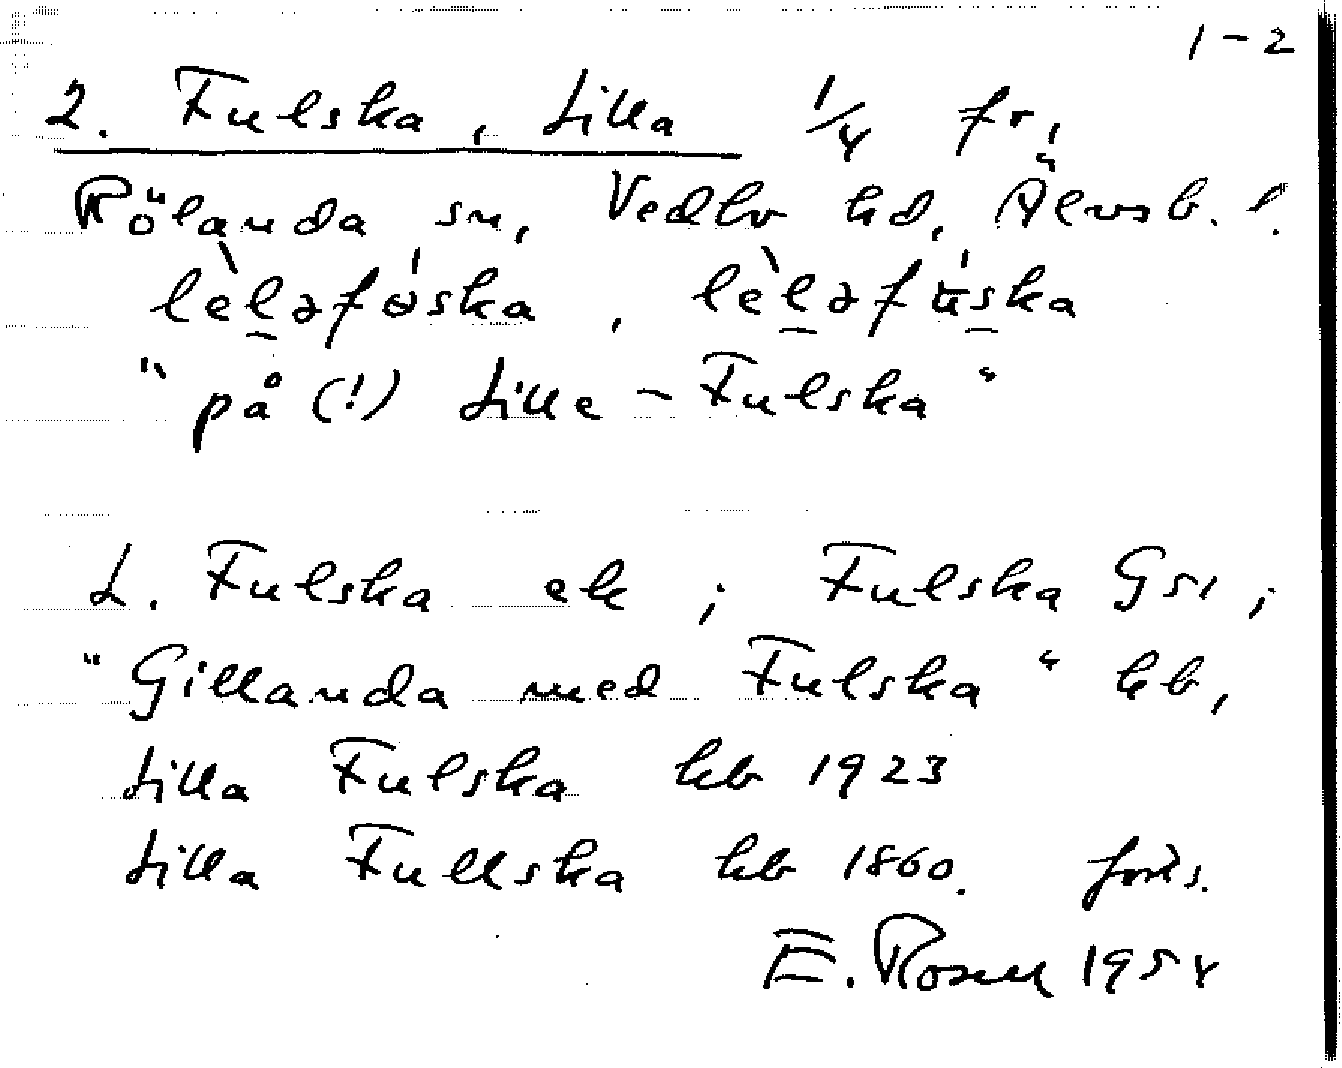 1-2
2. Fulska, Lilla 1/4 fr,
Rölanda sn, Vedbo hd, Älvsb. l.
lèləføska, lèləfuska
"på (!) Lille-Fulska"
L. Fulska ek; Fulska Gs1;
"Gillanda med Fulska" kb,
Lilla Fulska kb 1923
Lilla Fullska kb 1860. forts.
E. Rosell 1954